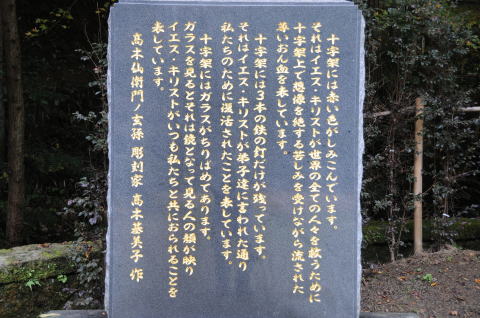 十字架には赤い色がしみこんでいます。
それはイエス・キリストが世界の全ての人々を救うために
十字架上で想像を絶する苦しみを受けながら流された
尊いおん血を表しています。
十字架には3本の鉄の釘だけが残っています。
それはイエス・キリストが弟子達に言われた通り
私たちのために復活されたことを表しています。
十字架にはガラスがちりばめてあります。
ガラスを見るとそれは鏡となって見る人の顔が映り
イエス・キリストがいつも私たちと共におられることを
表しています。
高木仙衛門ノ玄孫 彫刻家 高木基美子 作